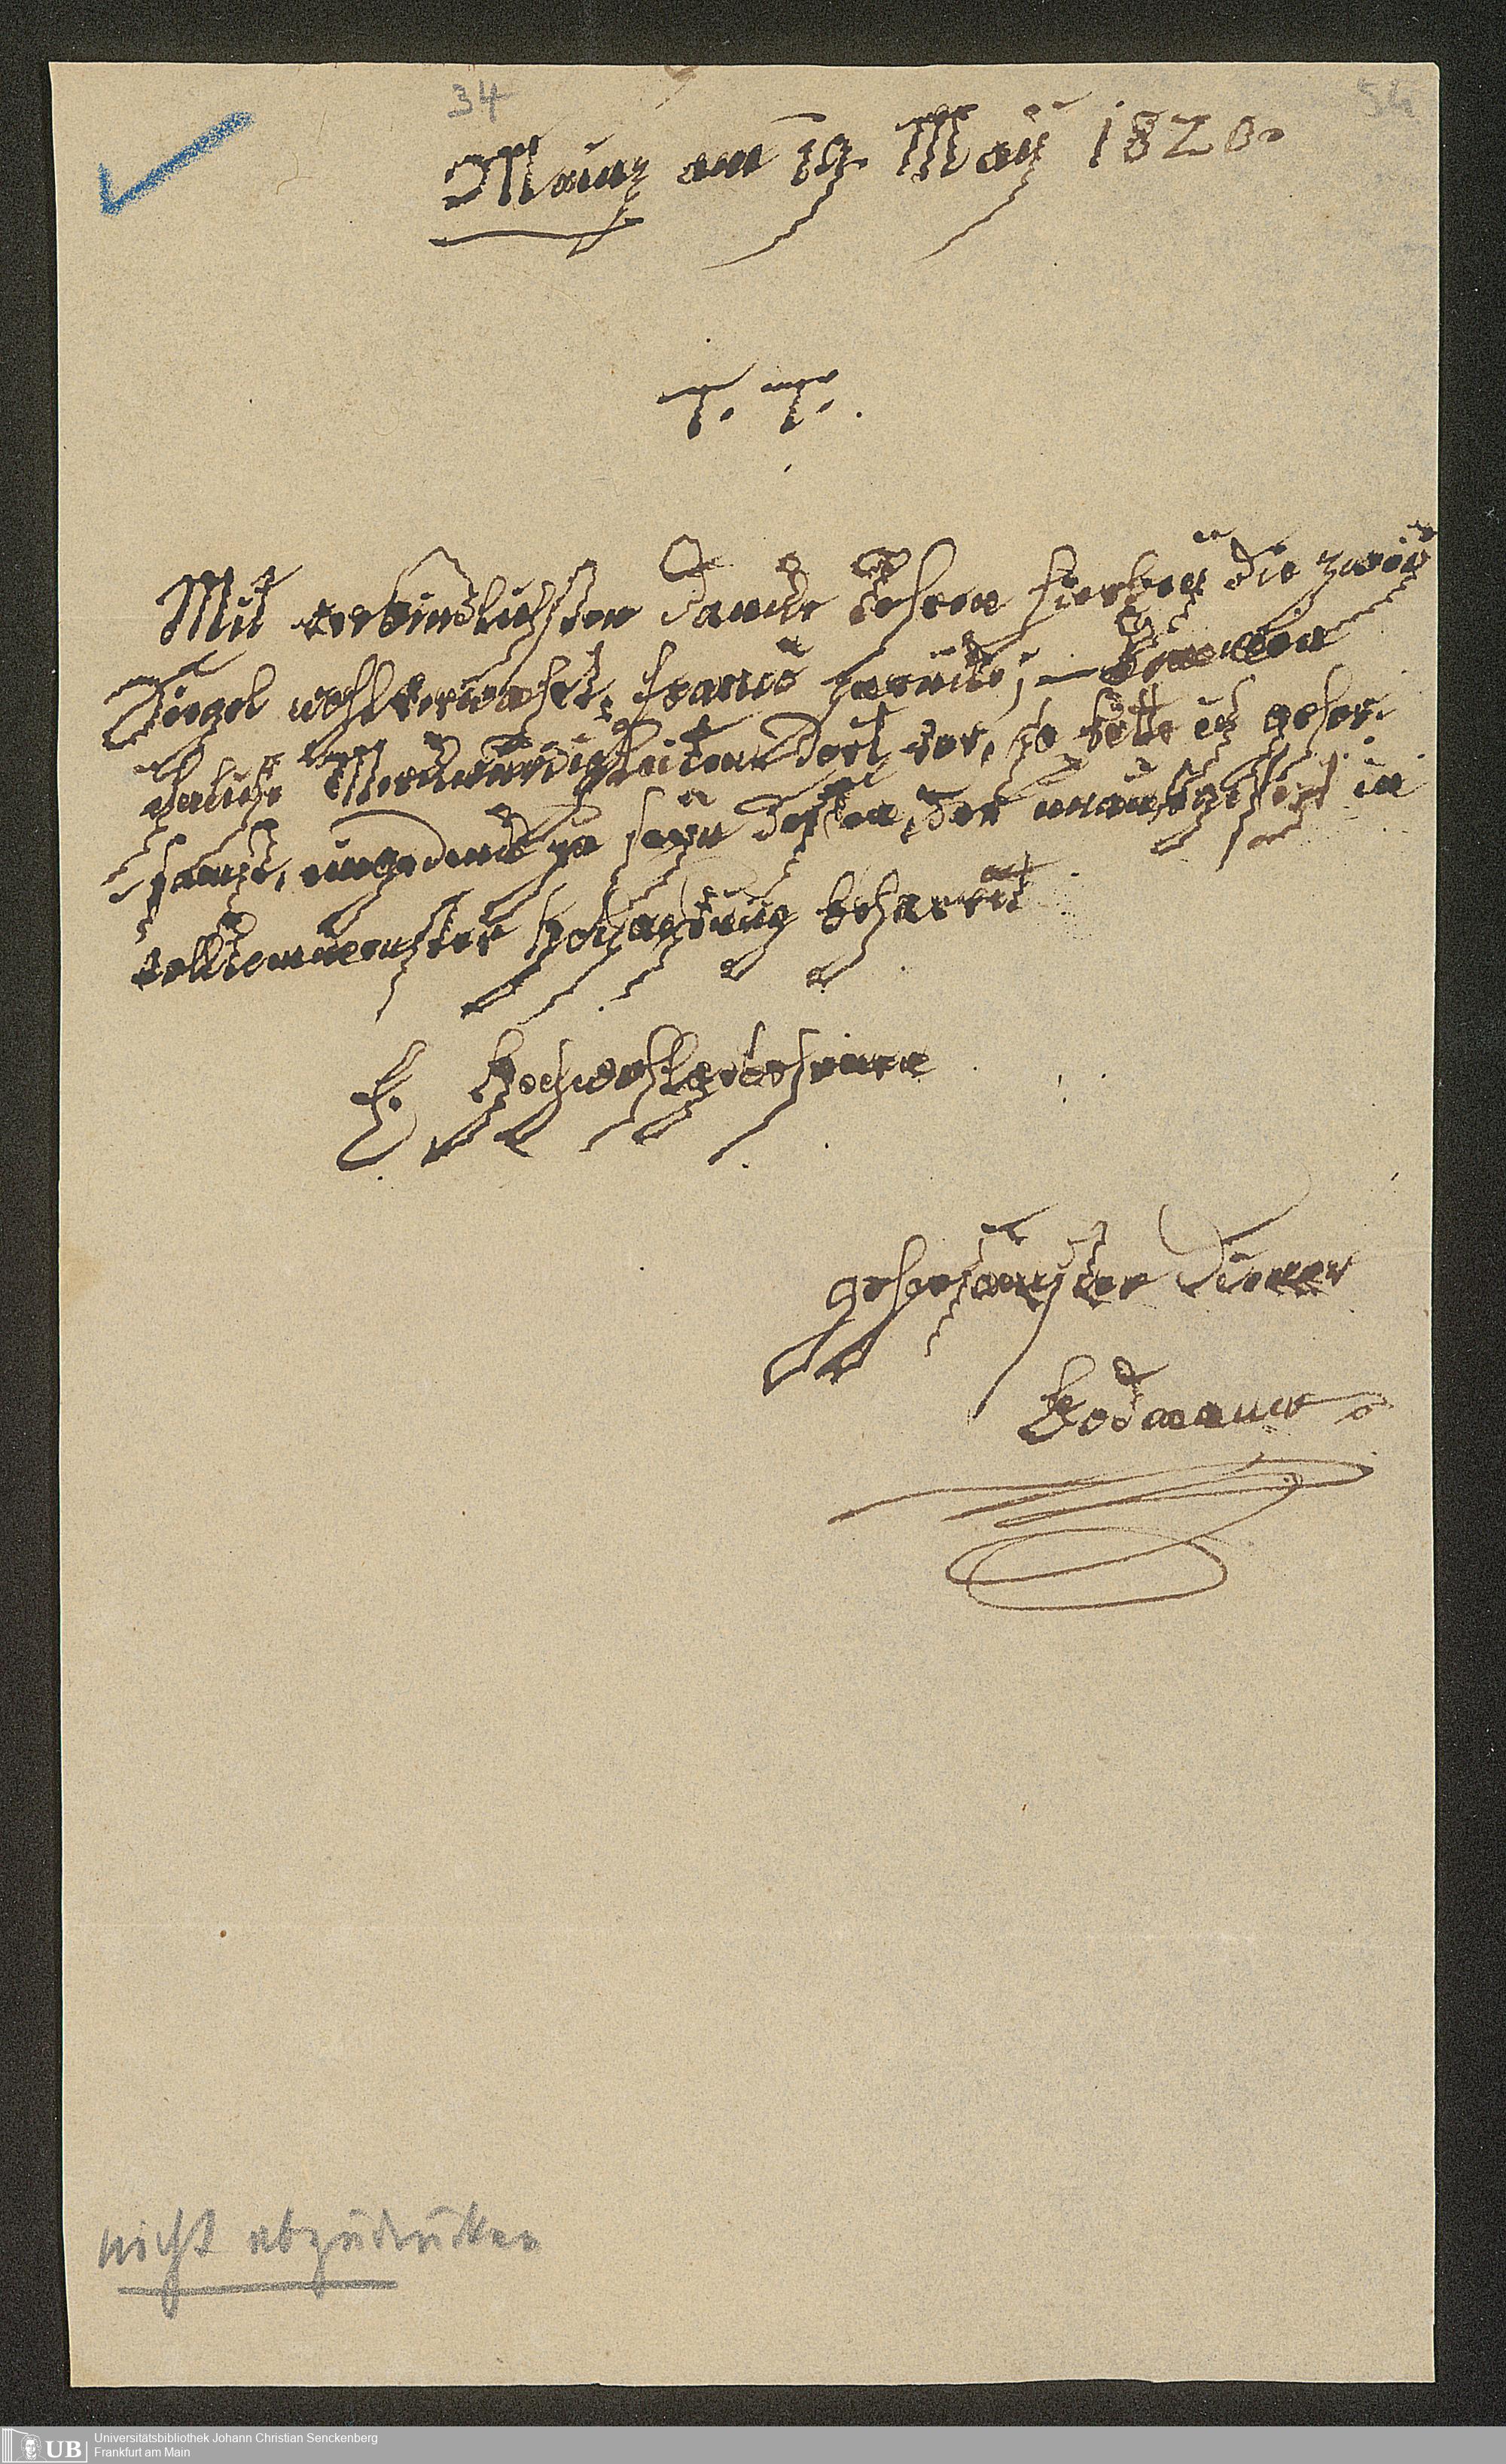 34
54
Mainz am 19. Maÿ 1820.
T. T.
Mit verbindlichsten Dancke kehren hierbeÿ die zweÿ
Siegel wohlverwahrt, franco zurücke; – Kommen
ähnliche Merckwürdigkeiten dort vor, so bitte ich gehor-
samst, eingedenck zu seÿn dessen, der unausgesetzt in
vollkommenster Hochachtung beharret
E. Hochwohlgebohrnen
gehorsamster Diener
Bodmann
nicht abzudrucken
UB
Universitätsbibliothek Johann Christian Senckenberg
Frankfurt am Main